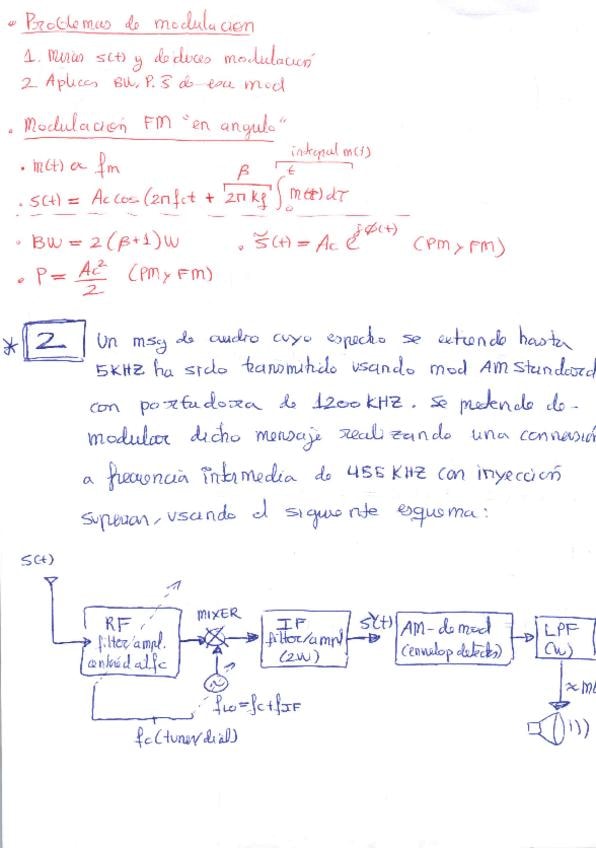 • Problemas de modulacion
1. Miras s(t) y deduces modulación
2 Aplicas BW, P, S̃ de esa mod
• Modulacion FM "en angulo"
integral m(t)
• m(t) α fm
β
• s(t) = Ac cos (2π fct + 2π kf ∫₀ᵗ m(τ) dτ
• BW = 2(β+1)W • s̃(t) = Ac e^jϕ(t) (PM y FM)
• P = Ac²/2 (PM y FM)
* 2 Un msg de audio cuyo espectro se extiende hasta
5KHZ ha sido transmitido usando mod AM Standard
con portadora de 1200KHZ. Se pretende de-
modular dicho mensaje realizando una conversión
a frecuencia intermedia de 455 KHZ con inyección
superior, usando el siguiente esquema:
s(t)
RF
filter/ampl.
centred at fc
MIXER
IF
filter/ampl
(2W)
s̃(t)
AM-demod
(envelop detector)
LPF
(W)
fLO = fc + fIF
fc (tuner/dial)